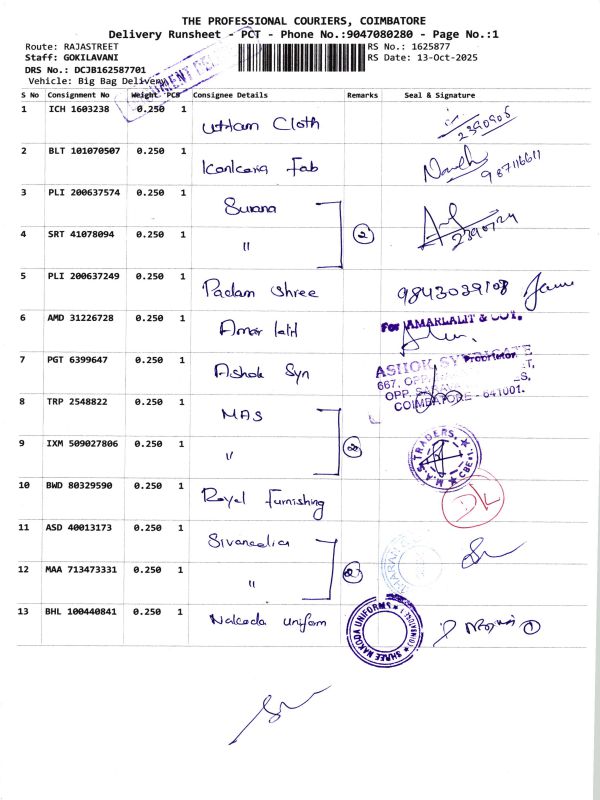 THE PROFESSIONAL COURIERS, COIMBATORE
Delivery Runsheet - PCT - Phone No.:9047080280 - Page No.:1
Route: RAJASTREET
RS No.: 1625877
Staff: GOKILAVANI
RS Date: 13-Oct-2025
DRS No.: DCJB162587701
Vehicle: Big Bag Delivery
S No Consignment No Weight PCS Consignee Details Remarks Seal & Signature
1 ICH 1603238 0.250 1 Uttam Cloth 2390905
2 BLT 101070507 0.250 1 Kankaria Fab 987116611
3 PLI 200637574 0.250 1 Surana
4 SRT 41078094 0.250 1 " 2 2390724
5 PLI 200637249 0.250 1 Padam Shree 9843039108
6 AMD 31226728 0.250 1 Amar lalit For AMARLALIT & COY.
Proprietor
7 PGT 6399647 0.250 1 Ashok Syn ASHOK SYNDICATE
667, OPP.
OPP.
COIMBATORE - 641001.
8 TRP 2548822 0.250 1 MAS
9 IXM 509027806 0.250 1 " 2 M.A.S. TRADERS, CBE-1.
10 BWD 80329590 0.250 1 Royal Furnishing
11 ASD 40013173 0.250 1
12 MAA 713473331 0.250 1 " 2
13 BHL 100440841 0.250 1 Nakoda Uniform SHREE NAKODA UNIFORMS 1